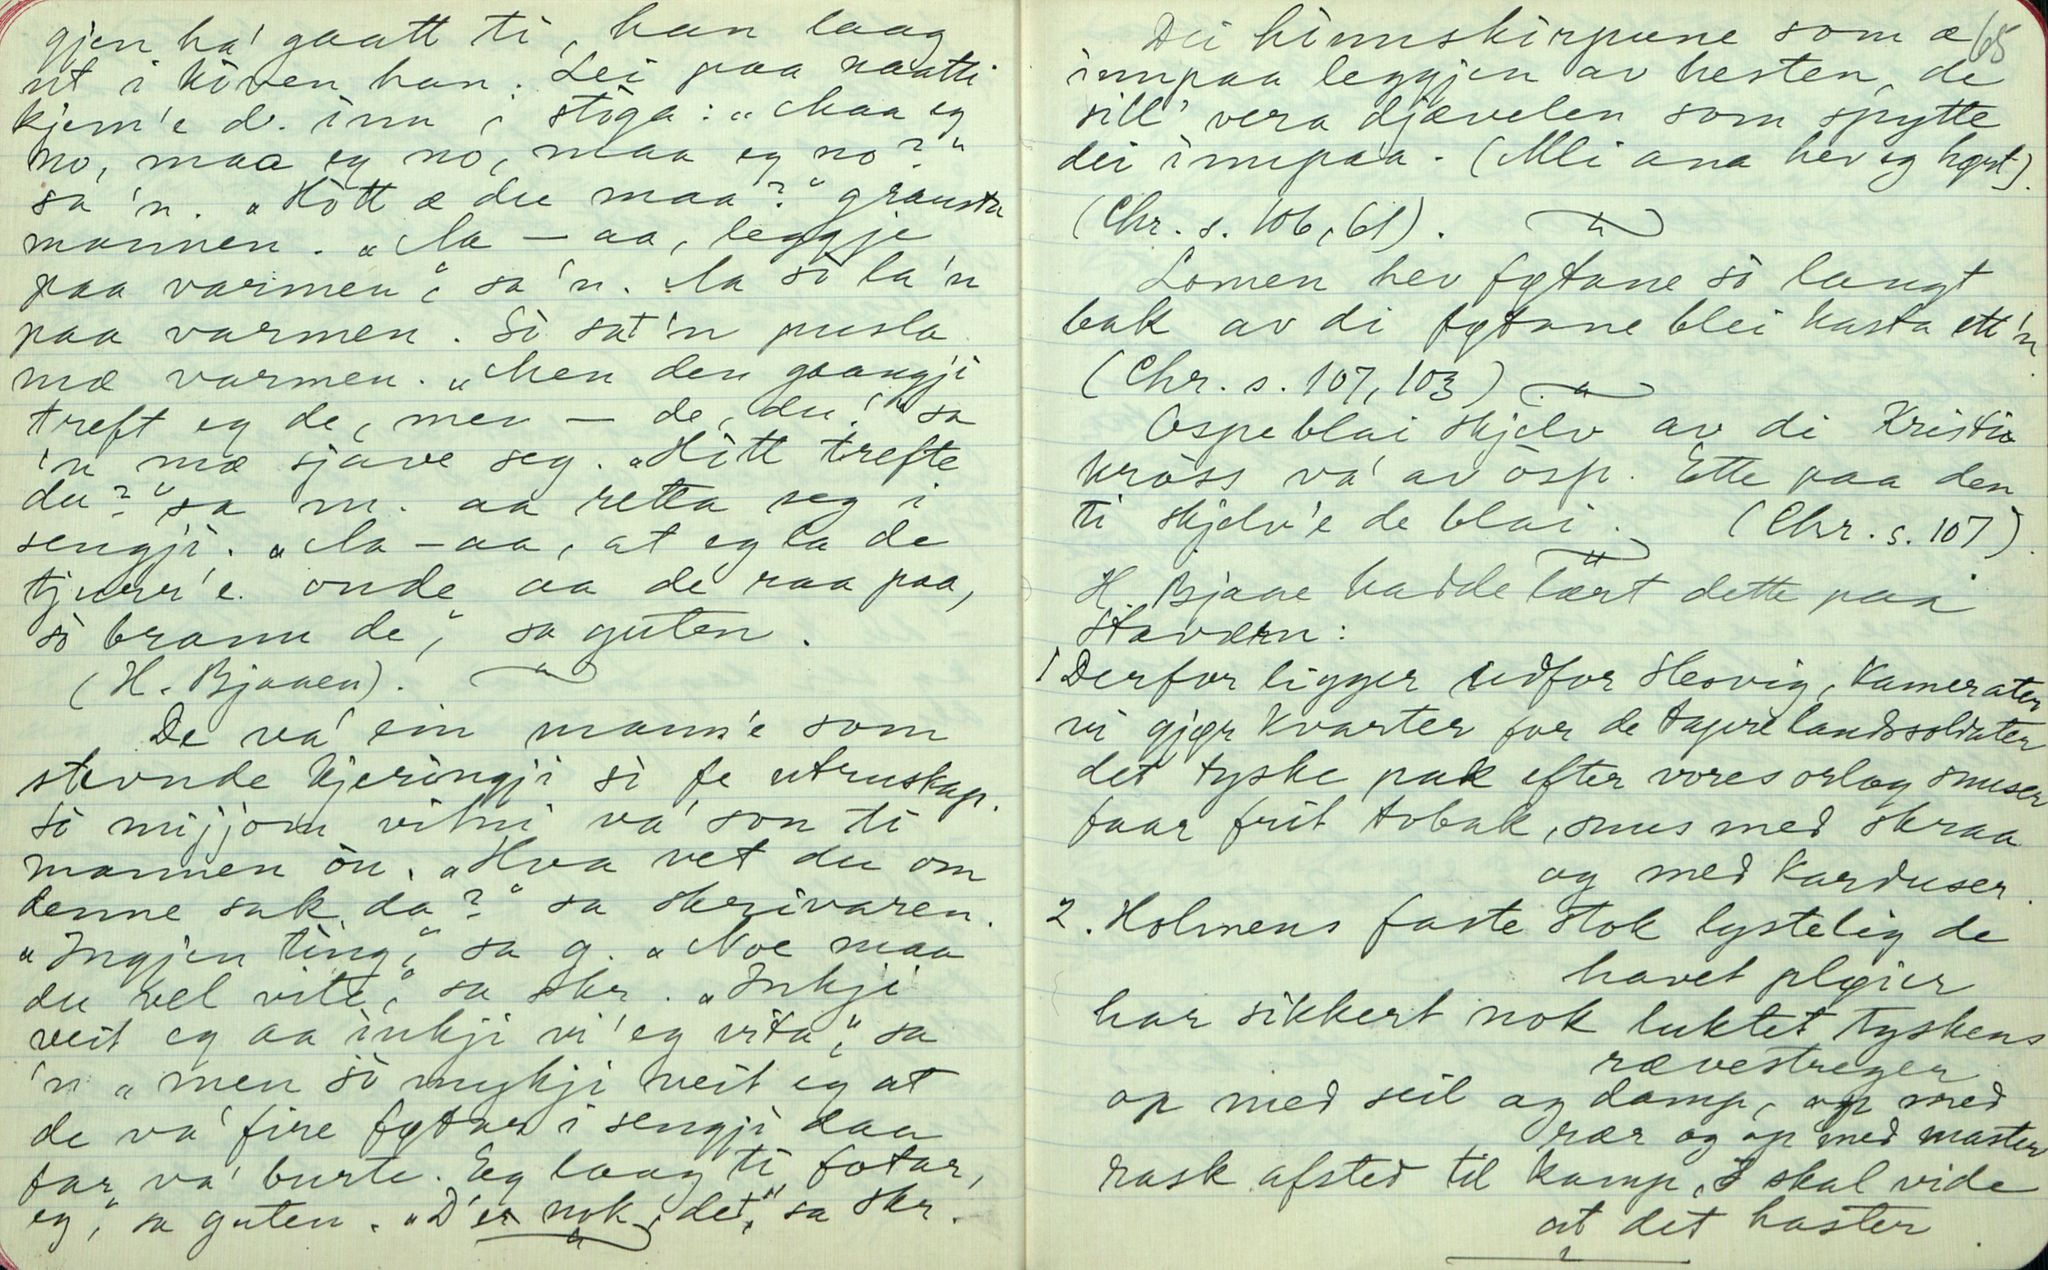 gjen ha' gaatt ti, han laag
ut i kòven han. Lei paa naatti
kjem'e d. inn i stòga: „Maa eg
no, maa eg no, maa eg no?“
sa 'n. „Hòtt æ du maa?“ gransta
mannen. „Aa – aa, leggje
paa varmen“, sa 'n. Aa sò la 'n
paa varmen. Sò sat 'n pusla
mæ varmen. „Men den gaangji
treft eg de, men – de, du!“ sa
'n mæ sjave seg. „Hòtt trefte
du?“ sa m. aa retta seg i
sengji. „Aa – aa, at eg la de
tjurr'e onde aa de raa paa,
sò brann de,“ sa guten.
(H. Bjaaen).
De va' ein mann'e som
stevnde kjeringji si fe utruskap.
Sò mijjom vitni va' son ti
mannen òu. „Hva vet du om
denne sak da?“ sa skrivaren.
„Ingjen ting,“ sa g. „Noe maa
du vel vite,“ sa skr. „Inkji
veit eg aa inkji vi' eg vita“, sa
'n „men sò mykji veit eg at
de va' fire føtar i sengji daa
far va' burte. Eg laag ti fotar,
eg,“ sa guten. „D'er nok, det,“ sa skr.
65
Dei hinnskirpune som æ
innpaa leggjen av hesten, de
sill' vera djævelen som spytte
dei innpaa. (Mli ana hev eg høyrt).
(Chr. s. 106, 61).
Lomen hev føtane sò langt
bak av di føtane blei kasta ett'n
(Chr. s. 107, 103)
Ospeblai skjelv av di Kristi
kròss va' av òsp. Ette paa den
ti skjelv'e de blai. (Chr. s. 107).
H. Bjaae hadde lært dette paa
Staværn:
1 Derfor ligger udfor Hesvig, Kamerater
vi gjør kvarter for de tapre landssoldater
det tyske pak efter vores orlog snuser
faar frit tobak, snus med skraa
og med karduser.
2. Holmens faste stok lystelig de
havet pløier
har sikkert nok luktet tyskens
rævestreger
op med seil og damp, op med
rær og op med master
rask afsted til kamp, I skal vide
at det haster